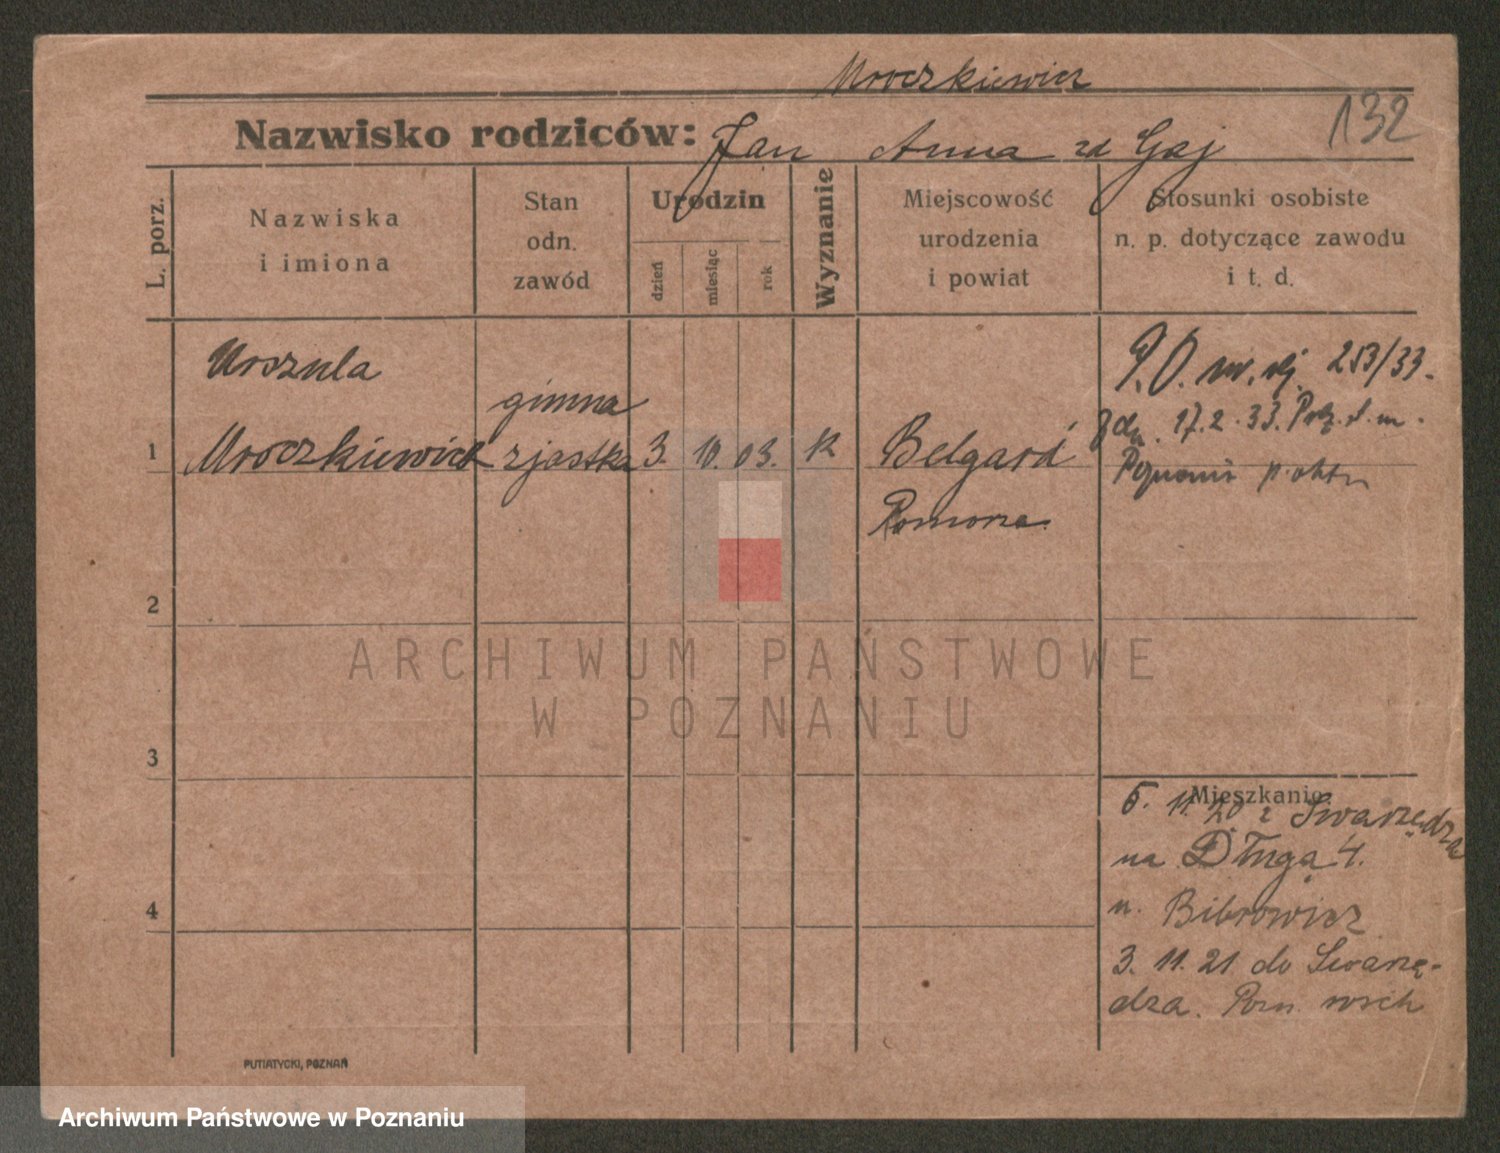 Mroczkiewicz
Nazwisko rodziców: Jan Anna zd Gaj
132
L. porz.
Nazwiska
i imiona
Stan
odn.
zawód
Urodzin
dzień
miesiąc
rok
Wyznanie
Miejscowość
urodzenia
i powiat
Stosunki osobiste
n. p. dotyczące zawodu
i t. d.
1
Urszula
Mroczkiewicz
gimna
zjastka
3. 10. 03.
K
Belgard
Pomorze
P.O. nr. 253/33.
17.2.33.
2
3
4
Mieszkanie
5. 11. 20 z Swarzędza
na Długa 4.
u. Bibrowicz
3. 11. 21 do Swarzę-
dza. Pozn. wsch
PUTIATYCKI, POZNAŃ
ARCHIWUM PAŃSTWOWE
W POZNANIU
Archiwum Państwowe w Poznaniu